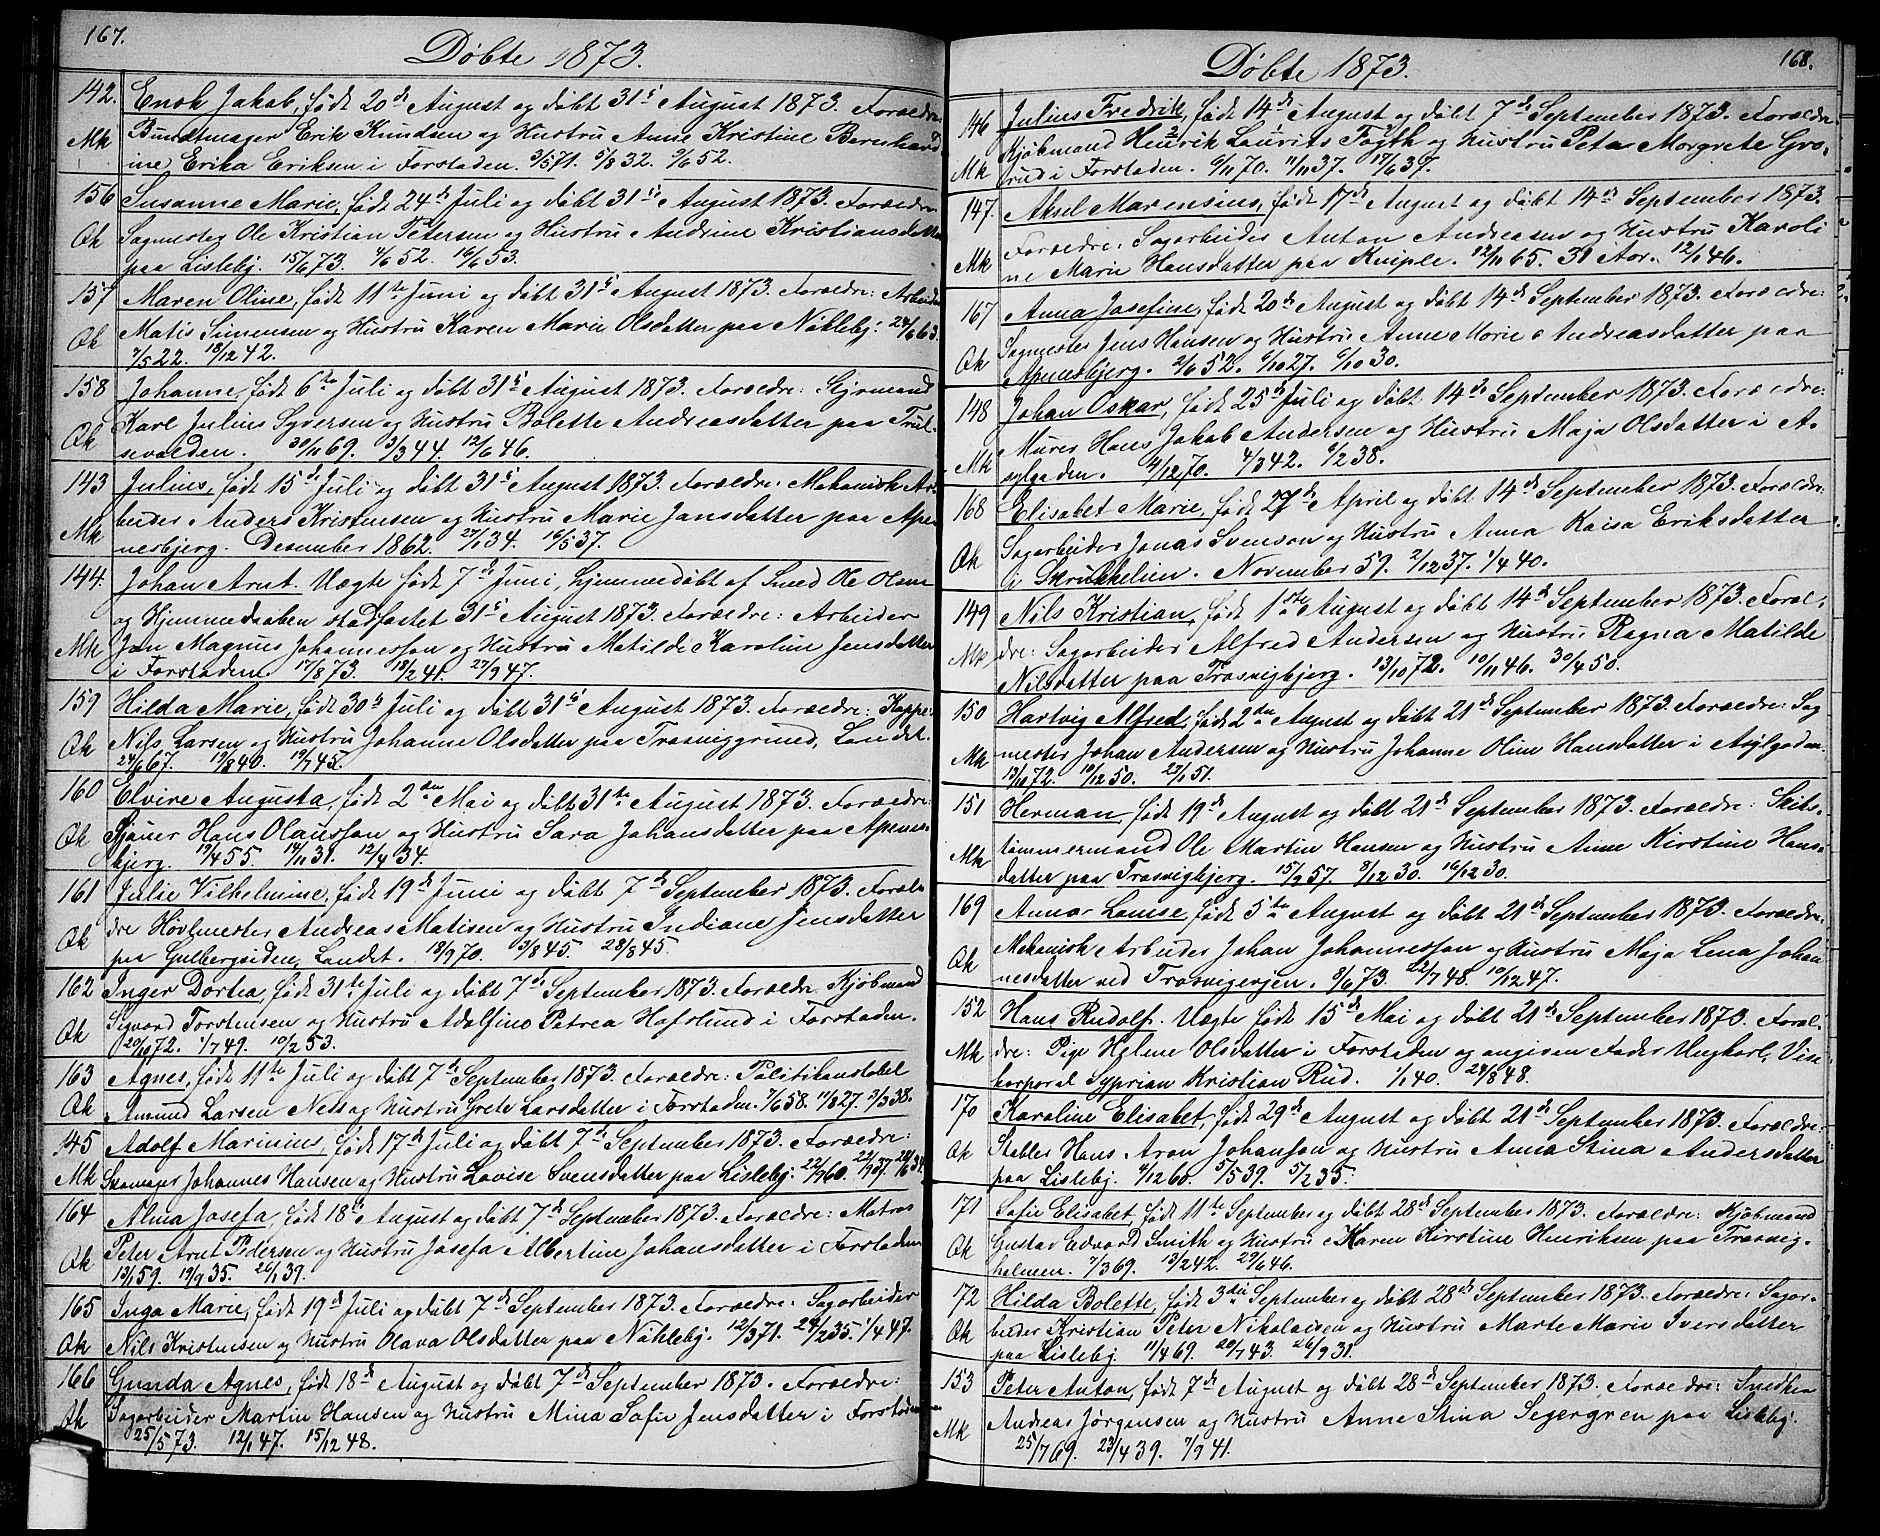 167.
Døbte 1873.
142. Enok Jakob, født 20de August og døbt 31te August 1873. Forældre:
Mk Bundtmager Erik Knudsen og Hustru Anne Kristine Bernhard
ine Erika Eriksen i Forstaden. 3/5 71. 5/8 32. 9/6 52.
156 Susanne Marie, født 24de Juli og døbt 31te August 1873. Forældre
Qk Sagmester Ole Kristian Petersen og Hustru Andrine Kristiansdatter
paa Lisleby. 15/6 73. 4/6 52. 16/6 53.
157 Maren Oline, født 11te Juni og døbt 31te August 1873. Forældre: Arbeider
Qk Matis Simensen og Hustru Karen Marie Olsdatter paa Nøkleby: 24/6 63.
7/5 22. 18/12 42.
158 Johanne, født 6te Juli og døbt 31te August 1873. Forældre: Styrmand
Qk Karl Julius Syversen og Hustru Bolette Andreasdatter paa Trul-
sevolden. 30/11 69. 3/3 44. 12/6 46.
143 Julius, født 15de Juli og døbt 31te August 1873. Forældre: Mekanisk Ar-
Mk beider Anders Kristensen og Hustru Marie Jansdatter paa Ape-
nesbjerg. Desember 1862. 27/1 34. 16/5 37.
144. Johan Arnt. Uægte født 7de Juni, hjemmedøbt af Smed Ole Olsen
og Hjemmedaaben stadfæstet 31te August 1873. Forældre: Arbeider
Mk Jan Magnus Johannesson og Hustru Matilde Karoline Jensdatter
i Forstaden. 17/8 73. 18/2 41. 27/9 47.
159 Hilda Marie, født 30te Juli og døbt 31te August 1873. Forældre: Kappe-
Qk Nils Larsen og Hustru Johanne Olsdatter paa Trosviggrund, Landet.
24/6 67. 19/8 40. 19/7 45.
160 Elvire Augusta, født 2den Mai og døbt 31te August 1873. Forældre:
Qk Sjauer Hans Olausson og Hustru Sara Johansdatter paa Apenes-
bjerg. 19/4 55. 14/11 31. 12/4 34.
161 Julie Vilhelmine, født 19de Juni og døbt 7de September 1873. Foræl-
Qk dre Høvlmester Andreas Matisen og Hustru Indiane Jensdatter
paa Gulbergsiden, Landet. 18/9 70. 3/8 45. 28/8 45.
162 Inger Dortea, født 31te Juli og døbt 7de September 1873. Forældre Kjøbmand
Qk Sigvard Torstensen og Hustru Adolfine Petrea Hafslund i Forstaden.
20/10 72. 1/7 49. 10/2 53.
163 Agnes, født 11te Juli og døbt 7de September 1873. Forældre: Politikonstabel
Qk Amund Larsen Nes og Hustru Grete Larsdatter i Forstaden. 7/6 58. 11/8 27. 3/3 38.
145 Adolf Marinius, født 17de Juli og døbt 7de September 1873. Forældre:
Mk Skomager Johannes Hansen og Hustru Lovise Svensdatter paa Lisleby: 22/9 60. 22/9 37. 34.
164 Alma Josefa, født 18de August og døbt 7de September 1873. Forældre: Matros
Qk Peter Arnt Pedersen og Hustru Josefa Albertine Johansdatter i Forstaden
13/1 59. 19/9 35. 26/1 39.
165 Inga Marie, født 19de Juli og døbt 7de September 1873. Forældre: Sagarbeider
Qk Nils Kristensen og Hustru Olava Olsdatter paa Nøkleby. 12/3 71. 24/2 35. 1/4 47.
166 Gunda Agnes, født 18de August og døbt 7de September 1873. Forældre:
Qk Sagarbeider Martin Hansen og Hustru Mina Sofie Jensdatter i Forstaden
25/5 73. 12/1 47. 15/12 48.
168.
Døbte 1873.
146 Julius Fredrik, født 14de August og døbt 7de September 1873. Forældre
Kjøbmand Henrik Laurits Fogth og Hustru Petra Morgrete Gro-
Mk rud i Forstaden. 6/11 70. 11/11 37. 17/6 37.
147. Aksel Marensius, født 17de August og døbt 14de September 1873.
Forældre: Sagarbeider Anton Andreasen og Hustru Karoli
Mk ne Marie Hansdatter paa Kniple. 12/11 65. 31 Aar. 12/1 46.
167 Anna Josefine, født 20de August og døbt 14de September 1873. Forældre:
Qk Sagmester Jens Hansen og Hustru Anne Marie Andreasdatter paa
Apenesbjerg. 2/6 52. 6/10 27. 6/10 30.
148 Johan Oskar, født 25de Juli og døbt 14de September 1873. Forældre:
Murer Hans Jakob Andersen og Hustru Maja Olsdatter i A-
Mk sylgaden. 4/12 70. 4/3 42. 6/2 38.
168 Elisabet Marie, født 27de April og døbt 14de September 1873. Forældre:
Sagarbeider Jonas Svenson og Hustru Anna Kaisa Eriksdatter
Qk i Skrukkelien. November 59. 2/12 37. 1/4 40.
149 Nils Kristian, født 1ste August og døbt 14de September 1873. Foræl-
Mk dre: Sagarbeider Alfred Andersen og Hustru Ragna Matilde
Nilsdatter paa Trosvigbjerg. 13/10 72. 10/11 46. 30/4 50.
150 Hartvig Alfred, født 2den August og døbt 21de September 1873. Forældre: Sag
Mk mester Johan Andersen og Hustru Johanne Oline Hansdatter i Asylgaden.
13/11 72. 10/12 50. 27/1 51.
151 Herman, født 19de August og døbt 21de September 1873. Forældre: Skibs-
Mk tømmermand Ole Martin Hansen og Hustru Anne Kirstine Hans-
datter paa Trosvigbjerg. 15/9 57. 8/12 30. 16/12 30.
169 Anna Lovise, født 5te August og døbt 21de September 1873. Forældre:
Qk Mekanisk Arbeider Johan Johannesson og Hustru Maja Lena Johan
nesdatter ved Trosvigveien. 8/6 73. 22/7 48. 10/12 47.
152 Hans Rudolf. Uægte født 15de Mai og døbt 21de September 1873. Foræl-
Mk dre: Pige Helene Olsdatter i Forstaden og angiven Fader Ungkarl, Vise
korporal Syprian Kristian Rud. 1/1 40. 28/8 48.
170 Karoline Elisabet, født 29de August og døbt 21de September 1873. Forældre:
Qk Stabler Hans Aron Johanson og Hustru Anna Stina Andersdatter
paa Lisleby. 4/12 60. 5/5 39. 5/2 35.
171 Sofie Elisabet, født 11te September og døbt 28de September 1873. Forældre: Kjøbmand
Qk Gustav Edvard Smith og Hustru Karen Kirstine Henriksen paa Trosvig-
holmen. 7/3 69. 13/2 42. 29/6 46.
72 Hilda Bolette, født 3die September og døbt 28de September 1873. Forældre: Sagar-
Qk beider Kristian Peter Nikolaisen og Hustru Marte Marie Iversdatter
paa Lisleby. 11/4 69. 20/7 43. 26/9 31.
153 Peter Anton, født 7de August og døbt 28de September 1873. Forældre: Snedker
Mk Andreas Jørgensen og Hustru Anne Stina Segergren paa Lisleby.
25/7 69. 23/4 39. 7/9 41.